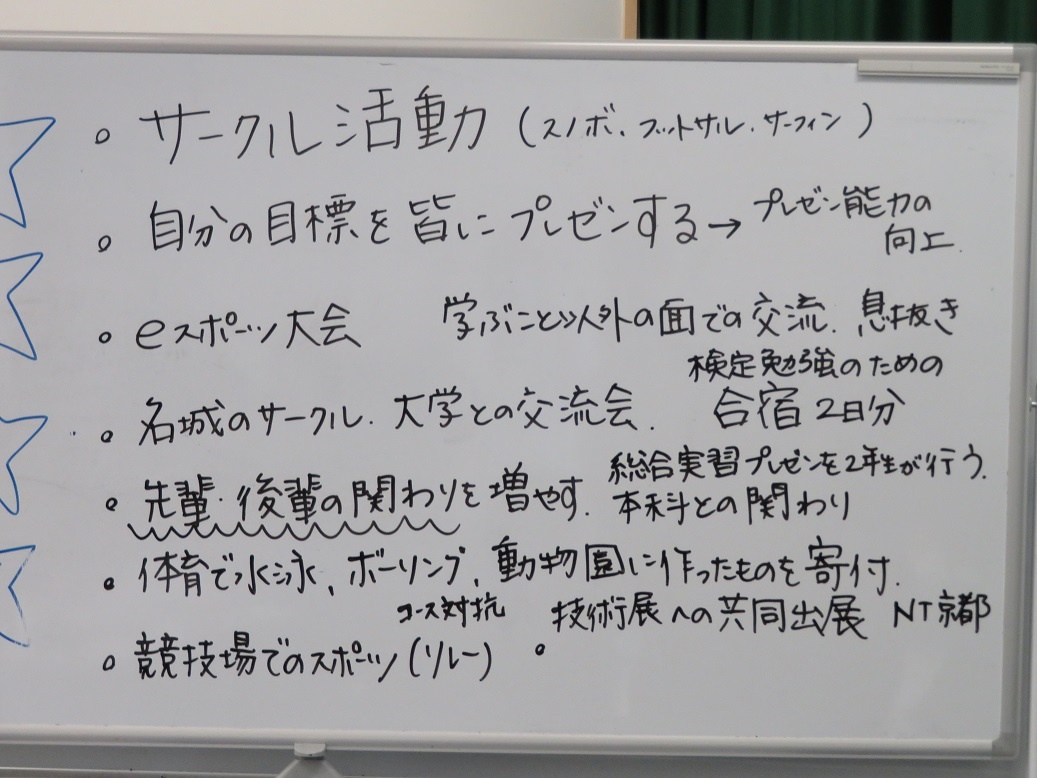 。サークル活動 (スノボ、フットサル、サーフィン)
。自分の目標を皆にプレゼンする→ プレゼン能力の
向上.
。eスポーツ大会 学ぶこと以外の面での交流. 息抜き
検定勉強のための
。名城のサークル.大学との交流会. 合宿2日分
総合実習プレゼンを2年生が行う.
。先輩・後輩の関わりを増やす. 本科との関わり
。体育で水泳、ボーリング、動物園に作ったものを寄付.
コース対抗 技術展への共同出展 NT京都
。競技場でのスポーツ(リレー) 。